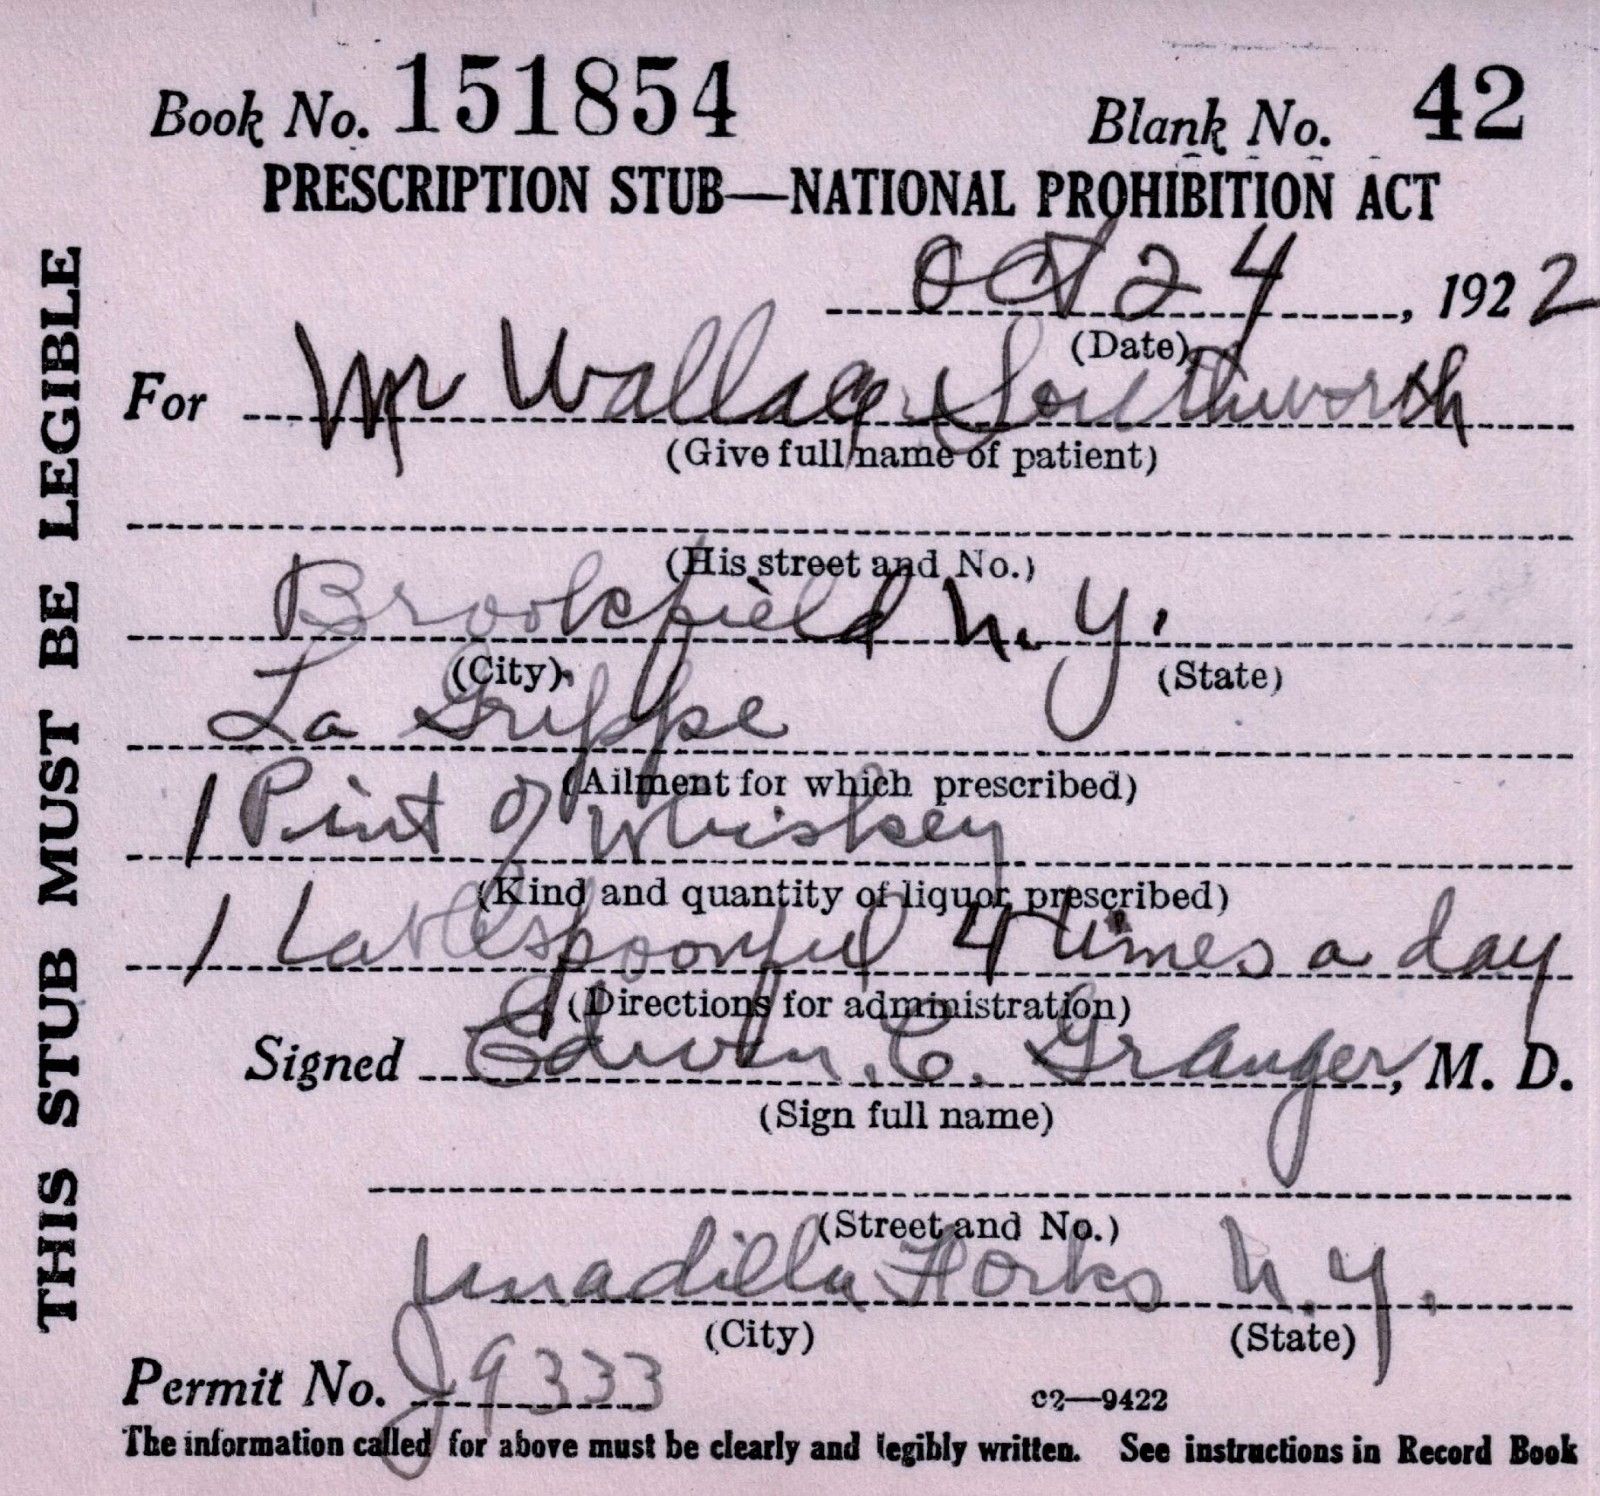 Book No. 151854 Blank No. 42
PRESCRIPTION STUB—NATIONAL PROHIBITION ACT
Oct 24, 1922
(Date)
For Mr Wallace Southworth
(Give full name of patient)
(His street and No.)
Brookfield N. Y.
(City) (State)
La Grippe
(Ailment for which prescribed)
1 Pint of Whiskey
(Kind and quantity of liquor prescribed)
1 tablespoonful 4 times a day
(Directions for administration)
Signed Edwin C. Granger, M. D.
(Sign full name)
(Street and No.)
Unadilla Forks N. Y.
(City) (State)
Permit No. J 9333
c2—9422
The information called for above must be clearly and legibly written. See instructions in Record Book
THIS STUB MUST BE LEGIBLE